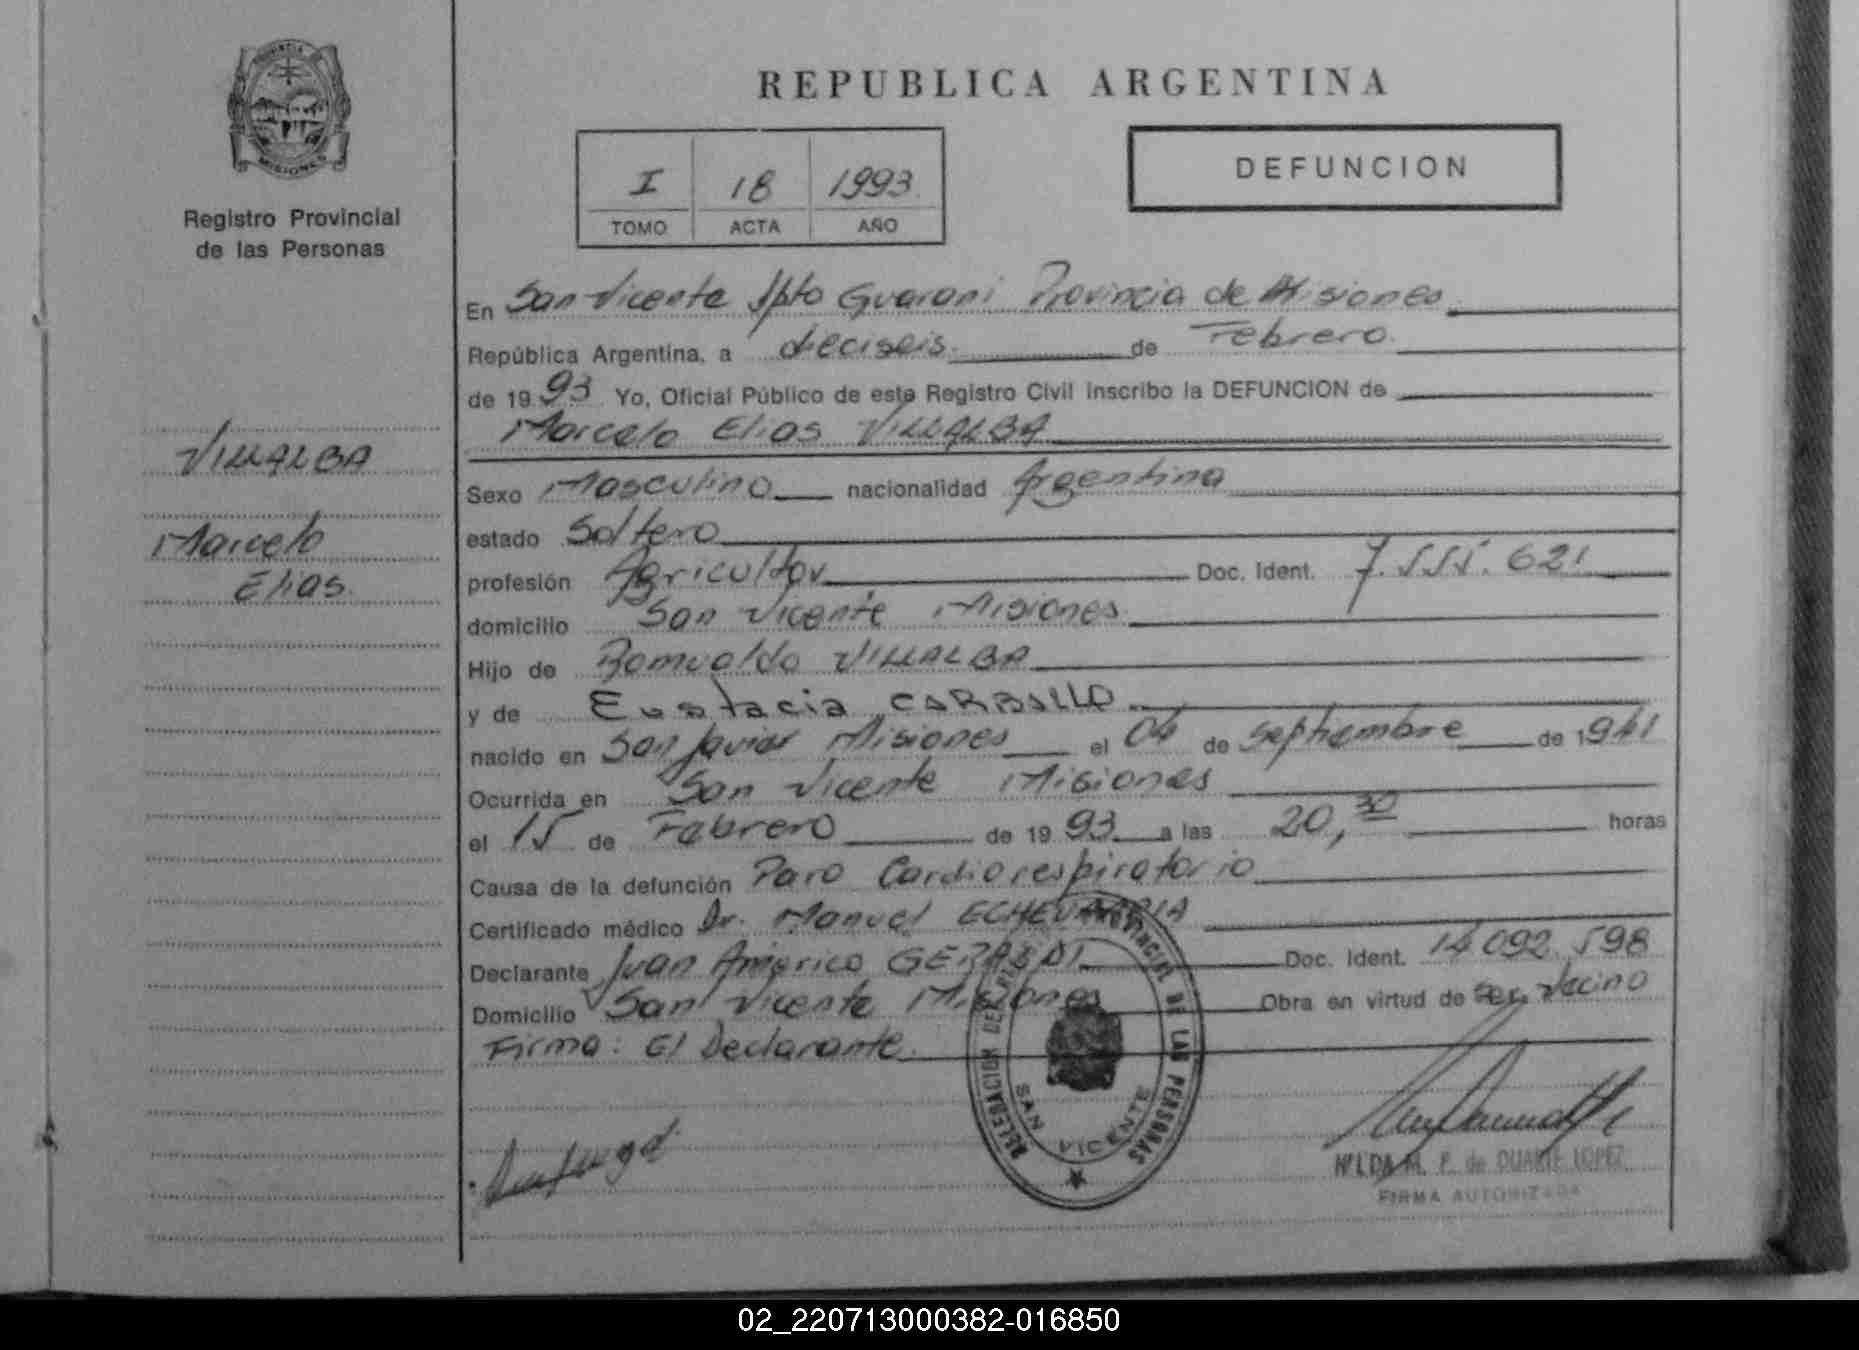 PROVINCIA
MISIONES
Registro Provincial
de las Personas
VILLALBA
Marcelo
Elias.
REPUBLICA ARGENTINA
I 18 1993.
TOMO ACTA AÑO
DEFUNCION
En San Vicente Dpto Guarani Provincia de Misiones
República Argentina, a dieciseis. de Febrero.
de 19 93 Yo, Oficial Público de este Registro Civil inscribo la DEFUNCION de
Marcelo Elias VILLALBA
Sexo Masculino nacionalidad Argentina
estado Soltero
profesión Agricultor Doc. Ident. 7.555.621
domicilio San Vicente Misiones
Hijo de Romualdo VILLALBA
y de Eustacia CARBALLO
nacido en San Javier Misiones el 04 de Septiembre de 1941
Ocurrida en San Vicente Misiones
el 15 de Febrero de 19 93 a las 20,30 horas
Causa de la defunción Paro Cardiorespiratorio
Certificado médico Dr. Manuel ECHEVARRIA
Declarante Juan Américo Doc. Ident. 14 092.598
Domicilio San Vicente Misiones Obra en virtud de ser Vecino
Firma: El Declarante.
DELEGACION PROVINCIAL DE LAS PERSONAS
SAN VICENTE
M. P. de DUARTE LOPEZ
FIRMA AUTORIZADA
02_220713000382-016850